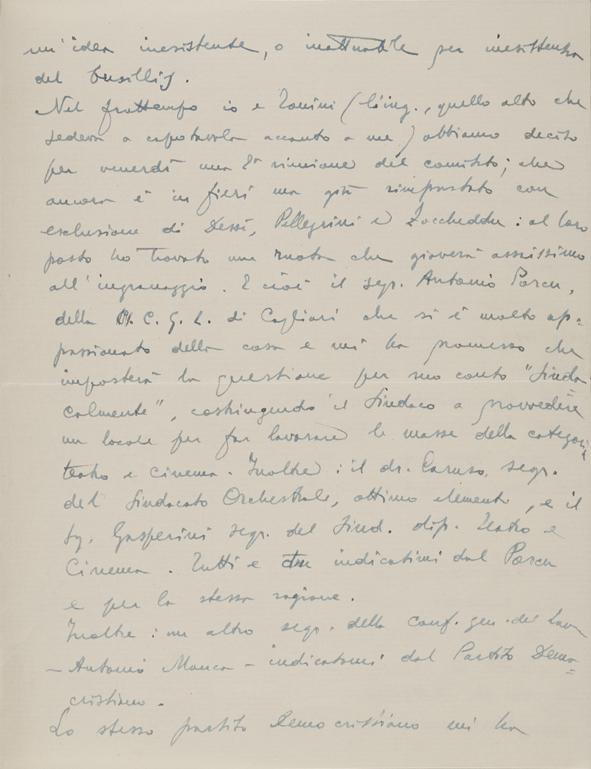 un'idea inesistente, o inattuabile per inesistenza
del busillis.
Nel frattempo io e Zanini (l'ing., quello alto che
sedeva a capotavola accanto a me) abbiamo deciso
per venerdì una 2ª riunione del comitato; che
ancora è in fieri ma già rimpastato con
esclusione di Dessì, Pellegrini e Zoccheddu: al loro
posto ho trovato una ruota che gioverà assaissimo
all'ingranaggio. E cioè il segr. Antonio Porcu,
della C. G. L. di Cagliari che si è molto ap=
passionato della cosa e mi ha promesso che
imposterà la questione per suo conto "Sinda
calmente", costringendo il Sindaco a provvedere
un locale per far lavorare le masse della categoria
teatro e cinema. Inoltre: il dr. Caruso, segr.
del Sindacato Orchestrale, ottimo elemento, e il
Sg. Gasperini segr. del Sind. dip. Teatro e
Cinema. Tutti e due indicatimi dal Porcu
e per la stessa ragione.
Inoltre: un altro segr. della conf. gen. del lav
– Antonio Manca – indicatomi dal Partito Demo=
cristiano.
Lo stesso partito Democristiano mi ha